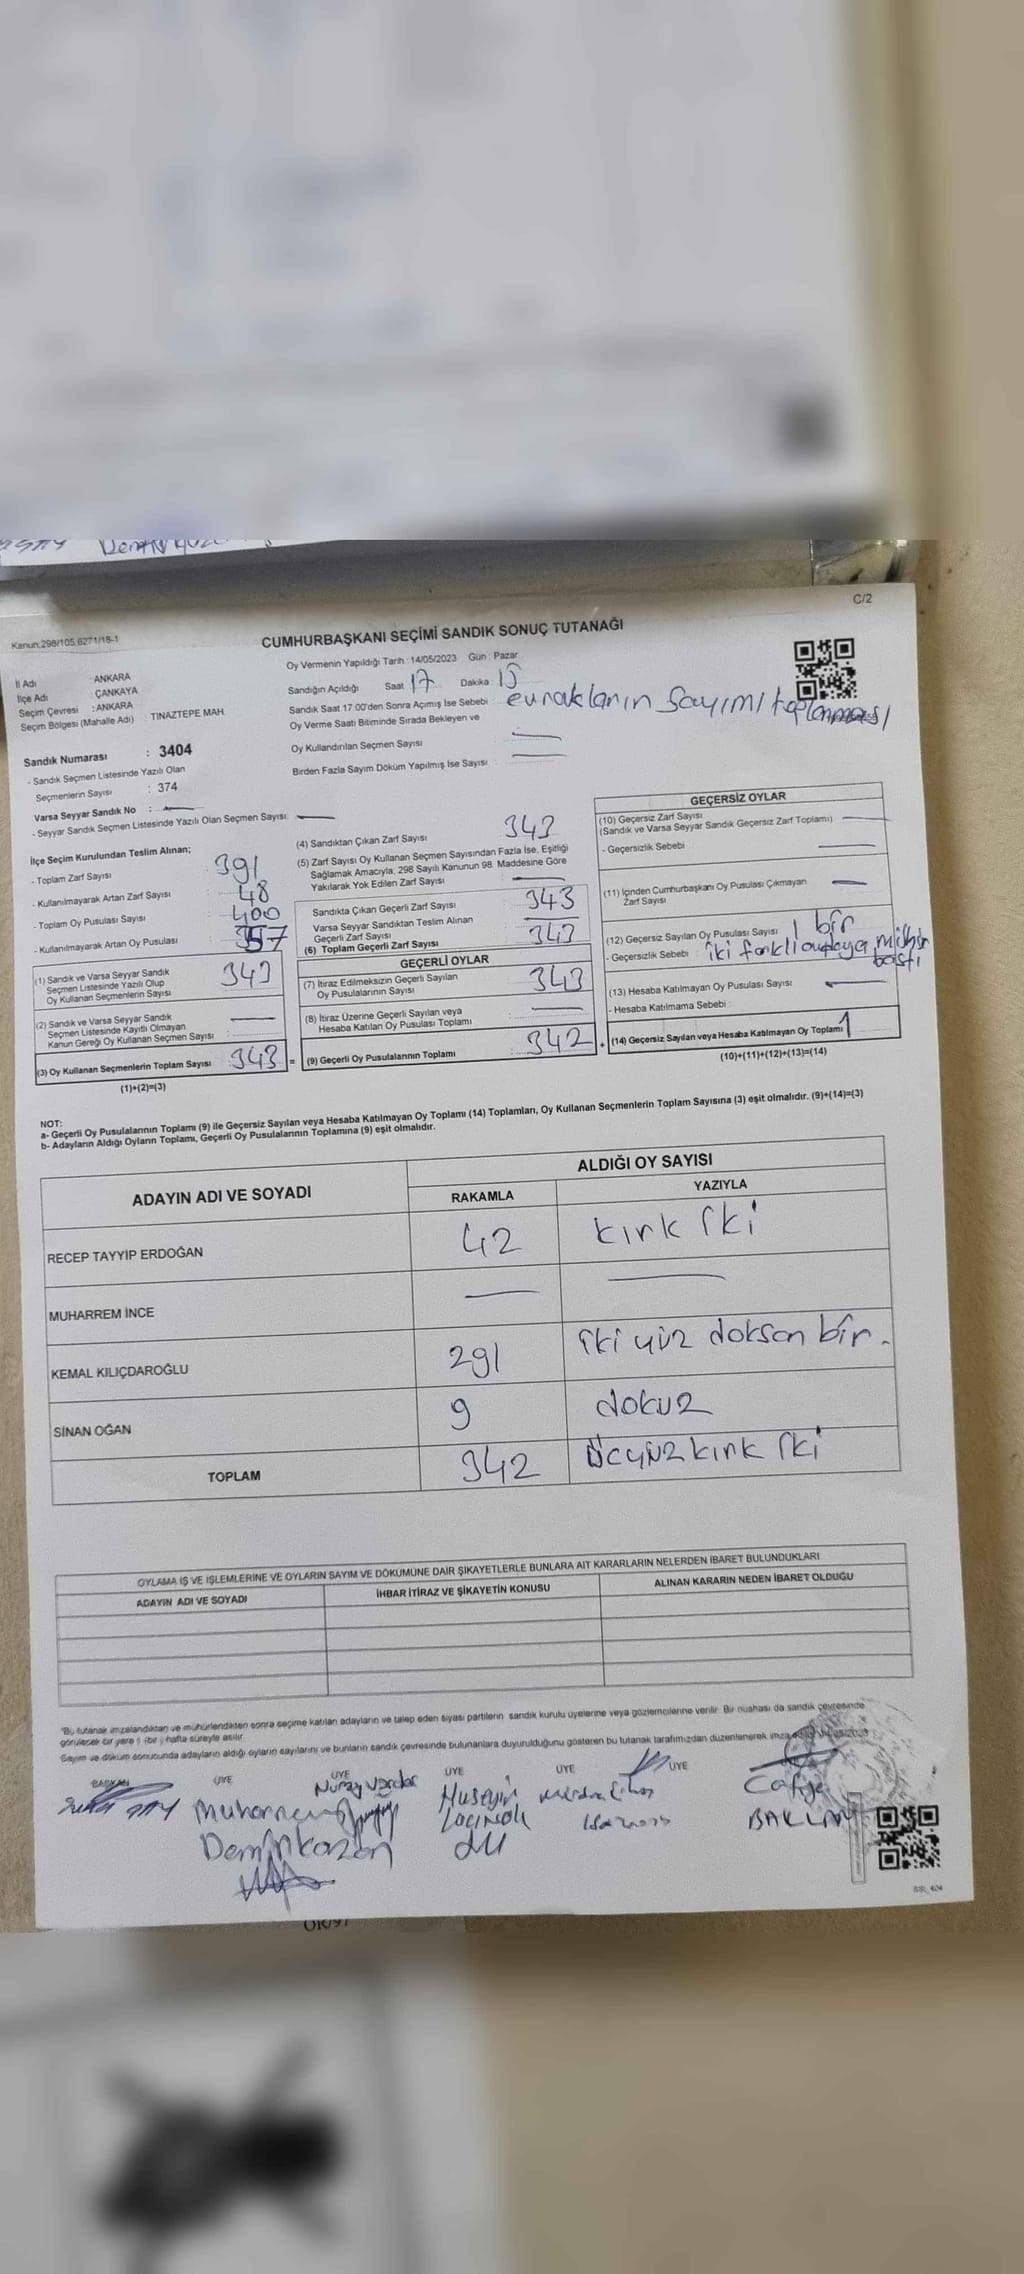 C/2
Kanun:298/105,6271/18-1
CUMHURBAŞKANI SEÇİMİ SANDIK SONUÇ TUTANAĞI
İl Adı : ANKARA
İlçe Adı : ÇANKAYA
Seçim Çevresi : ANKARA
Seçim Bölgesi (Mahalle Adı) : TINAZTEPE MAH
Oy Vermenin Yapıldığı Tarih : 14/05/2023 Gün : Pazar
Sandığın Açıldığı Saat 17 Dakika : 15
Sandık Saat 17.00'den Sonra Açımış İse Sebebi : evrakların sayımı toplanması
Oy Verme Saati Bitiminde Sırada Bekleyen ve
Oy Kullandırılan Seçmen Sayısı : —
Birden Fazla Sayım Döküm Yapılmış İse Sayısı : —
Sandık Numarası : 3404
- Sandık Seçmen Listesinde Yazılı Olan
Seçmenlerin Sayısı : 374
Varsa Seyyar Sandık No : —
- Seyyar Sandık Seçmen Listesinde Yazılı Olan Seçmen Sayısı: —
İlçe Seçim Kurulundan Teslim Alınan;
- Toplam Zarf Sayısı : 391
- Kullanılmayarak Artan Zarf Sayısı : 48
- Toplam Oy Pusulası Sayısı : 400
- Kullanılmayarak Artan Oy Pusulası : 357
(1) Sandık ve Varsa Seyyar Sandık
Seçmen Listesinde Yazılı Olup
Oy Kullanan Seçmenlerin Sayısı : 343
(2) Sandık ve Varsa Seyyar Sandık
Seçmen Listesinde Kayıtlı Olmayan
Kanun Gereği Oy Kullanan Seçmen Sayısı : —
(3) Oy Kullanan Seçmenlerin Toplam Sayısı : 343 =
(1)+(2)=(3)
(4) Sandıktan Çıkan Zarf Sayısı 343
(5) Zarf Sayısı Oy Kullanan Seçmen Sayısından Fazla İse, Eşitliği
Sağlamak Amacıyla, 298 Sayılı Kanunun 98. Maddesine Göre
Yakılarak Yok Edilen Zarf Sayısı : —
Sandıkta Çıkan Geçerli Zarf Sayısı : 343
Varsa Seyyar Sandıktan Teslim Alınan
Geçerli Zarf Sayısı : —
(6) Toplam Geçerli Zarf Sayısı : 343
GEÇERLİ OYLAR
(7) İtiraz Edilmeksizin Geçerli Sayılan
Oy Pusulalarının Sayısı : 343
(8) İtiraz Üzerine Geçerli Sayılan veya
Hesaba Katılan Oy Pusulası Toplamı : —
(9) Geçerli Oy Pusulalarının Toplamı : 342 +
GEÇERSİZ OYLAR
(10) Geçersiz Zarf Sayısı
(Sandık ve Varsa Seyyar Sandık Geçersiz Zarf Toplamı) : —
- Geçersizlik Sebebi : —
(11) İçinden Cumhurbaşkanı Oy Pusulası Çıkmayan
Zarf Sayısı : —
(12) Geçersiz Sayılan Oy Pusulası Sayısı : 1 bir
- Geçersizlik Sebebi : iki farklı mühür
bastı
(13) Hesaba Katılmayan Oy Pusulası Sayısı : —
- Hesaba Katılmama Sebebi :
(14) Geçersiz Sayılan veya Hesaba Katılmayan Oy Toplamı : 1
(10)+(11)+(12)+(13)=(14)
NOT:
a- Geçerli Oy Pusulalarının Toplamı (9) ile Geçersiz Sayılan veya Hesaba Katılmayan Oy Toplamı (14) Toplamları, Oy Kullanan Seçmenlerin Toplam Sayısına (3) eşit olmalıdır. (9)+(14)=(3)
b- Adayların Aldığı Oyların Toplamı, Geçerli Oy Pusulalarının Toplamına (9) eşit olmalıdır.
ADAYIN ADI VE SOYADI
ALDIĞI OY SAYISI
RAKAMLA YAZIYLA
RECEP TAYYİP ERDOĞAN 42 kırk iki
MUHARREM İNCE — —
KEMAL KILIÇDAROĞLU 291 iki yüz doksan bir.
SİNAN OĞAN 9 dokuz
TOPLAM 342 üçyüz kırk iki
OYLAMA İŞ VE İŞLEMLERİNE VE OYLARIN SAYIM VE DÖKÜMÜNE DAİR ŞİKAYETLERLE BUNLARA AİT KARARLARIN NELERDEN İBARET BULUNDUKLARI
ADAYIN ADI VE SOYADI İHBAR İTİRAZ VE ŞİKAYETİN KONUSU ALINAN KARARIN NEDEN İBARET OLDUĞU
*Bu tutanak imzalandıktan ve mühürlendikten sonra seçime katılan adayların ve talep eden siyasi partilerin sandık kurulu üyelerine veya gözlemcilerine verilir. Bir nüshası da sandık çevresinde
görülecek bir yere 1 (bir) hafta süreyle asılır.
Sayım ve döküm sonucunda adayların aldığı oyların sayılarını ve bunların sandık çevresinde bulunanlara duyurulduğunu gösteren bu tutanak tarafımızdan düzenlenerek imza
BAŞKAN ÜYE ÜYE ÜYE ÜYE ÜYE
Muharrem Nuray Hüseyin Cafiye
Demirkazan BAKLAN